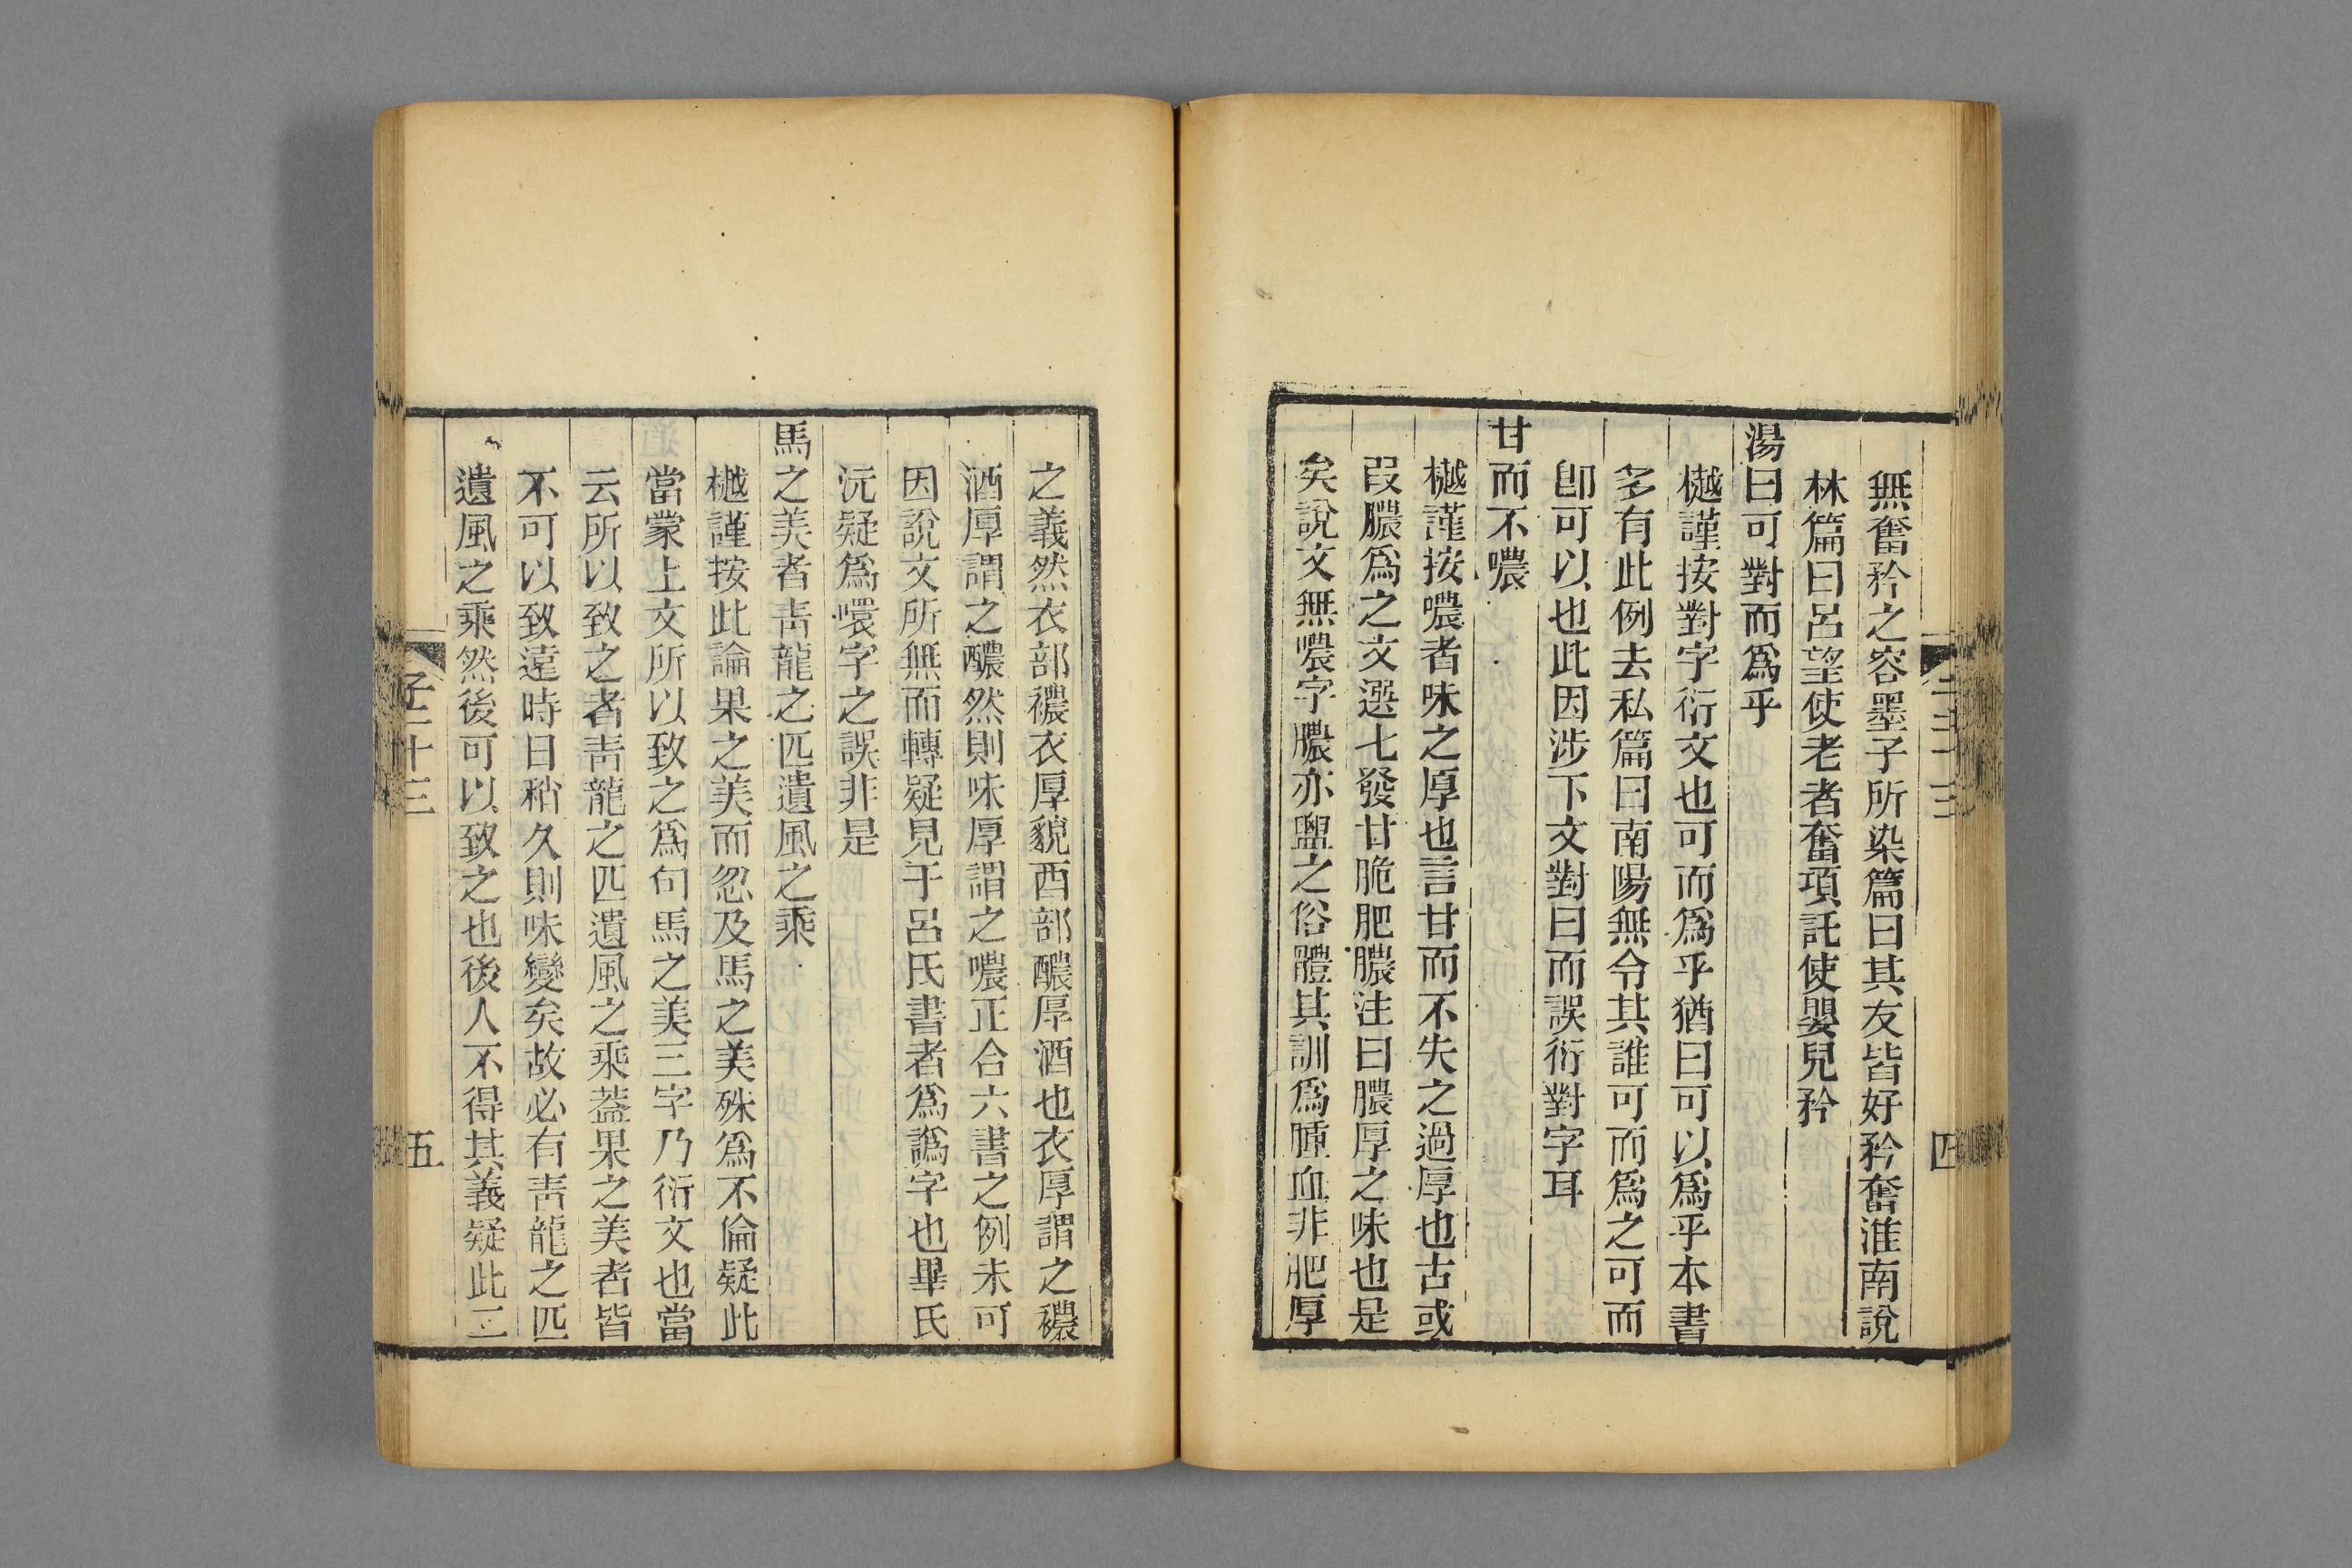 無奮矜之容墨子所染篇曰其友皆好矜奮淮南說
林篇曰呂望使老者奮項託使嬰兒矜
湯曰可對而爲乎
樾謹按對字衍文也可而爲乎猶曰可以爲乎本書
多有此例去私篇曰南陽無令其誰可而爲之可而
卽可以也此因涉下文對曰而誤衍對字耳
甘而不噥
樾謹按噥者味之厚也言甘而不失之過厚也古或
叚膿爲之文選七發甘脆肥膿注曰膿厚之味也是
矣說文無噥字膿亦盥之俗體其訓爲腫血非肥厚
四
之義然衣部襛衣厚貌酉部醲厚酒也衣厚謂之襛
酒厚謂之醲然則味厚謂之噥正合六書之例未可
因說文所無而轉疑見于呂氏書者爲譌字也畢氏
沅疑爲噮字之誤非是
馬之美者靑龍之匹遺風之乘
樾謹按此論果之美而忽及馬之美殊爲不倫疑此
當蒙上文所以致之爲句馬之美三字乃衍文也當
云所以致之者靑龍之匹遺風之乘蓋果之美者皆
不可以致遠時日稍久則味變矣故必有靑龍之匹
遺風之乘然後可以致之也後人不得其義疑此二
子二十三
五